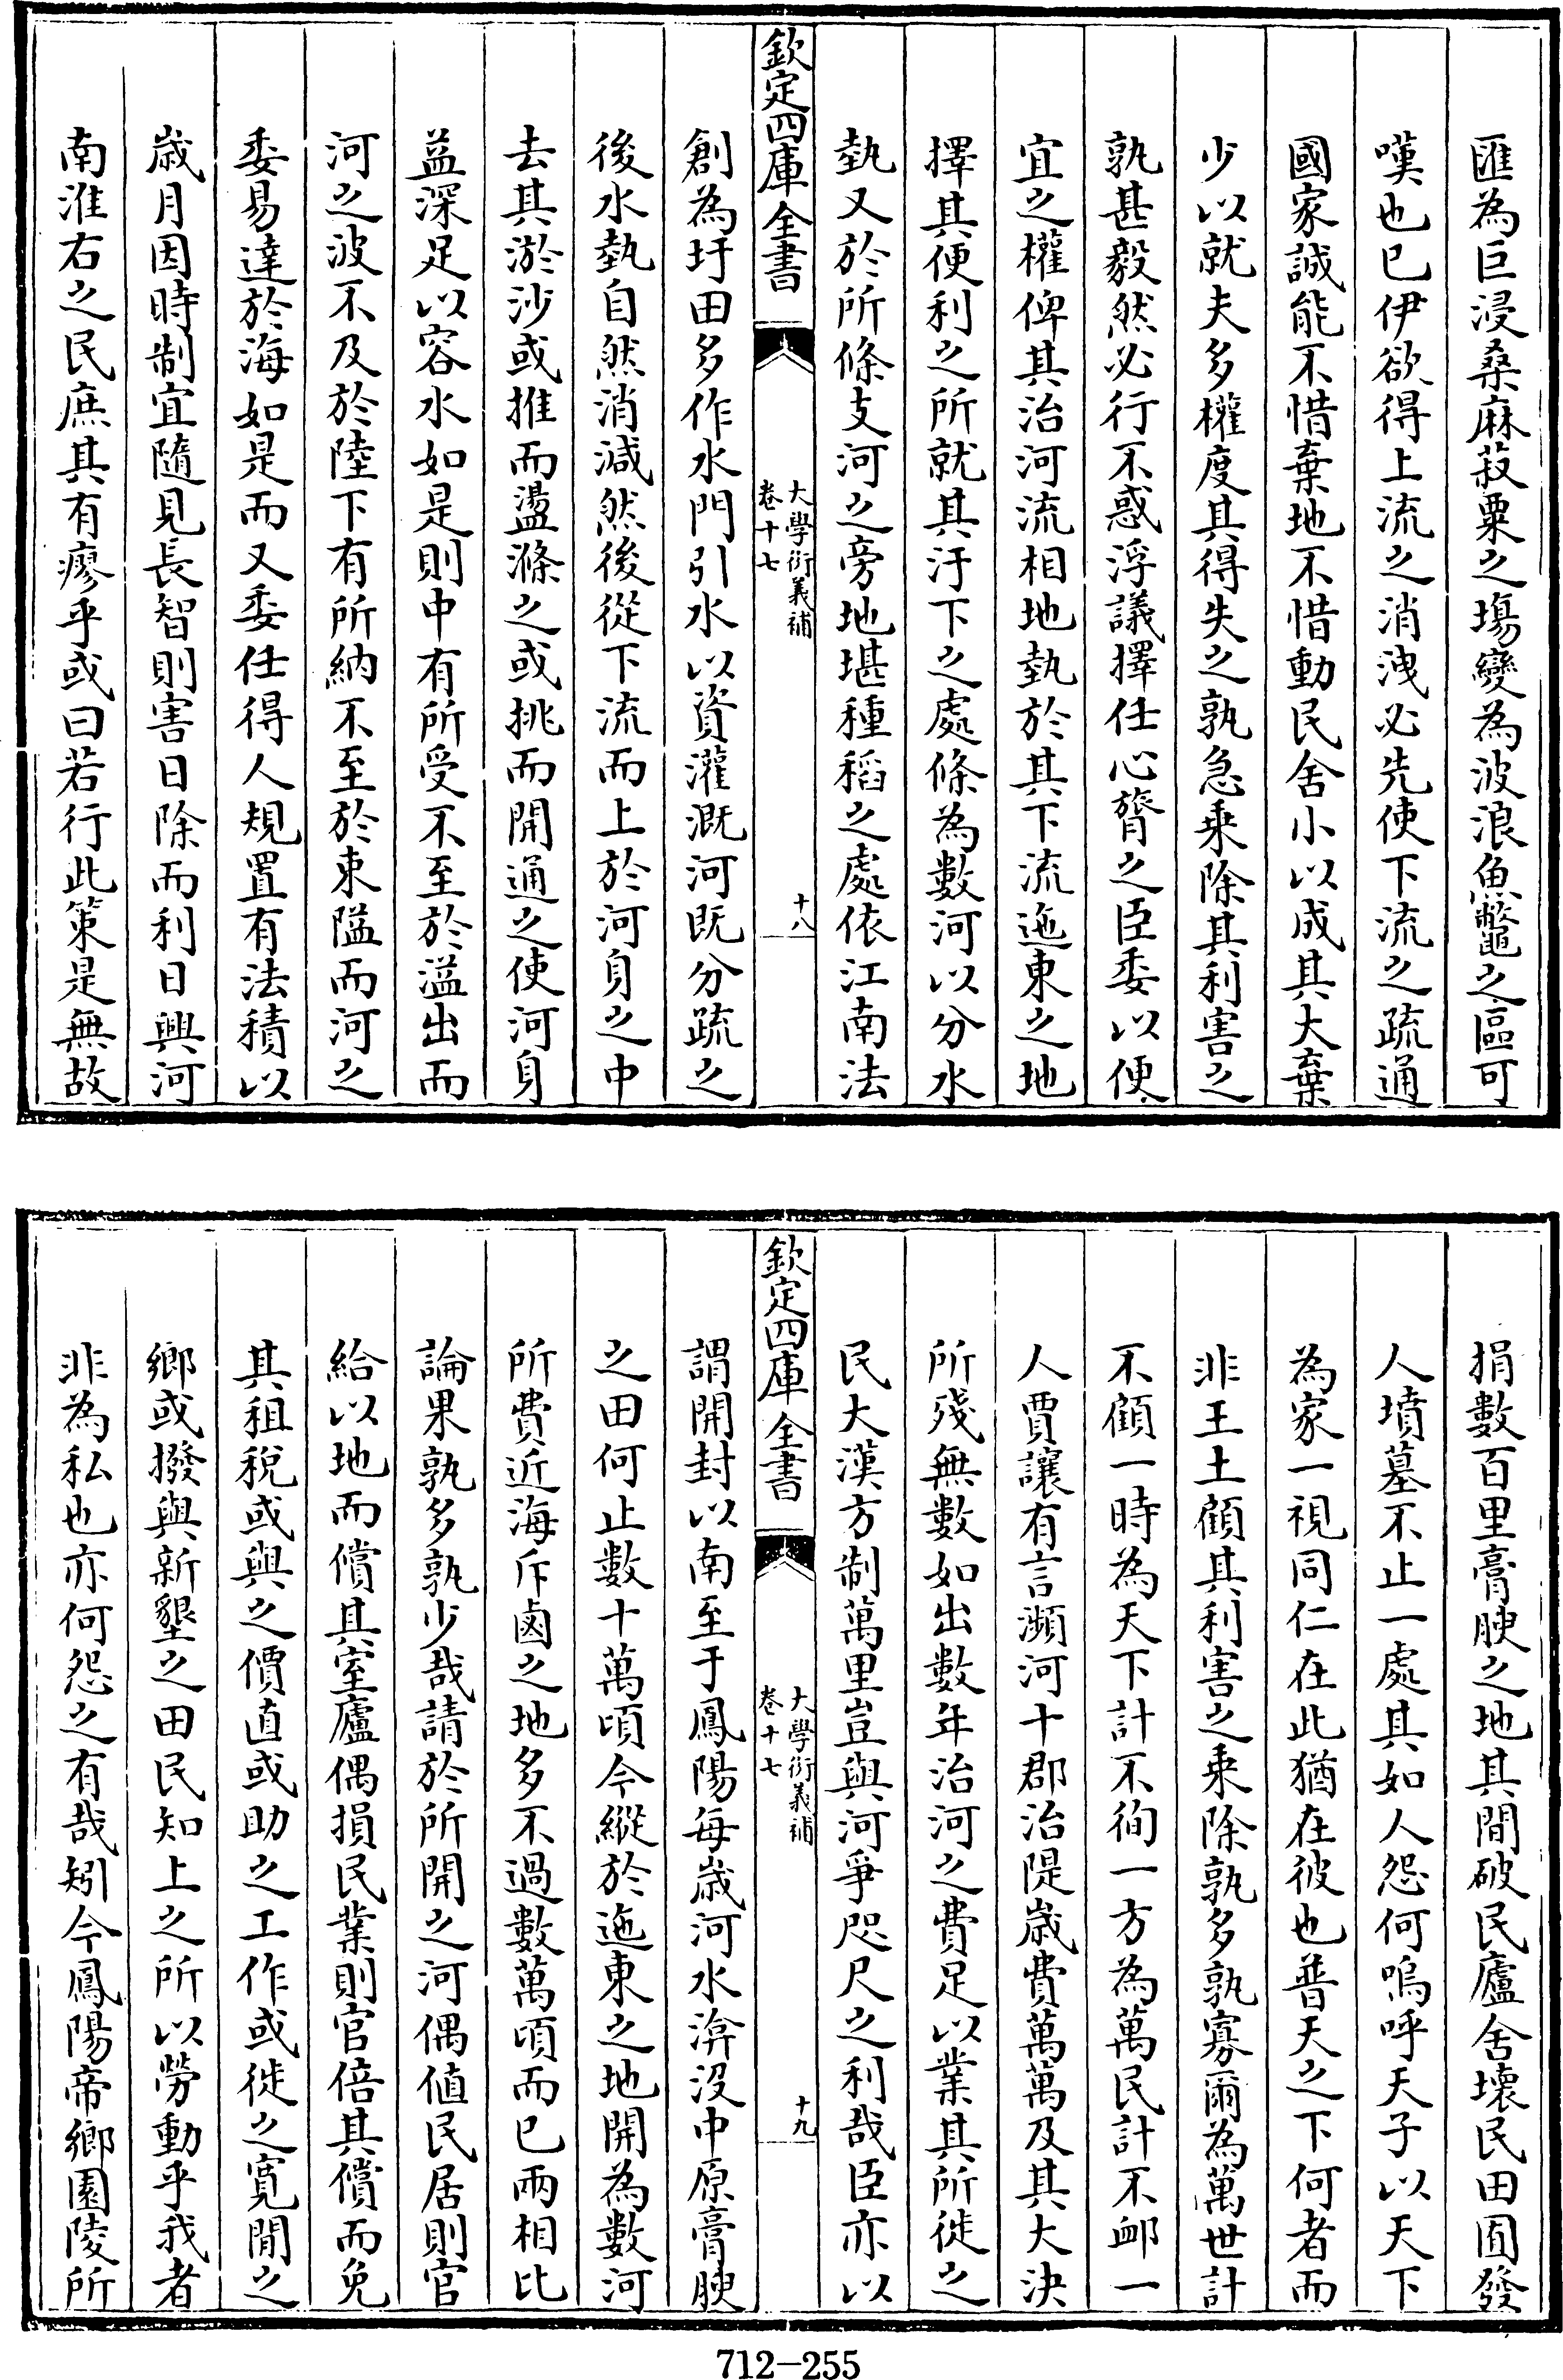 匯為巨浸桑麻菽粟之塲變為波浪魚鼈之區可
嘆也已伊欲得上流之消洩必先使下流之疏通
國家誠能不惜棄地不惜動民舍小以成其大棄
少以就夫多權度其得失之孰急乗除其利害之
孰甚毅然必行不惑浮議擇任心膂之臣委以便
宜之權俾其治河流相地埶於其下流迤東之地
擇其便利之所就其汙下之處條為數河以分水
埶又於所條支河之旁地堪種稻之處依江南法
欽定四庫全書
大學衍義補
卷十七
十八
創為圩田多作水門引水以資灌溉河既分疏之
後水埶自然消減然後從下流而上於河身之中
去其淤沙或推而盪滌之或挑而開通之使河身
益深足以容水如是則中有所受不至於溢出而
河之波不及於陸下有所納不至於東隘而河之
委易達於海如是而又委任得人規置有法積以
歲月因時制宜隨見長智則害日除而利日興河
南淮右之民庶其有瘳乎或曰若行此策是無故
捐數百里膏腴之地其間破民廬舍壞民田囿發
人墳墓不止一處其如人怨何嗚呼天子以天下
為家一視同仁在此猶在彼也普天之下何者而
非王土顧其利害之乗除孰多孰寡爾為萬世計
不顧一時為天下計不徇一方為萬民計不䘏一
人賈讓有言瀕河十郡治隄歲費萬萬及其大決
所殘無數如出數年治河之費足以業其所徙之
民大漢方制萬里豈與河爭咫尺之利哉臣亦以
欽定四庫全書
大學衍義補
卷十七
十九
謂開封以南至于鳳陽每歲河水渰沒中原膏腴
之田何止數十萬頃今縱於迤東之地開為數河
所費近海斥鹵之地多不過數萬頃而已兩相比
論果孰多孰少哉請於所開之河偶値民居則官
給以地而償其室廬偶損民業則官倍其償而免
其租稅或與之價直或助之工作或徙之寛閒之
鄉或撥與新墾之田民知上之所以勞動乎我者
非為私也亦何怨之有哉矧今鳳陽帝鄉園陵所
712-255